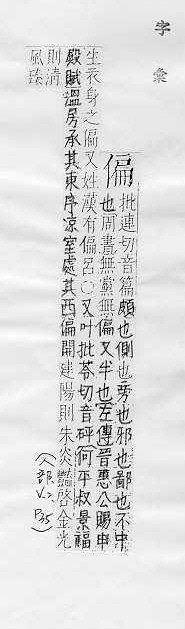 字彙
偏
批連切音篇頗也側也旁也邪也鄙也不中
也周書無黨無偏又半也左傳晉惠公賜申
生衣身之偏又姓漢有偏呂○又叶批苓切音砰何平叔景福
殿賦溫房承其東序涼室處其西偏開建陽則朱炎豔啓金光
則清
風臻
(人部 V.2, P.35)